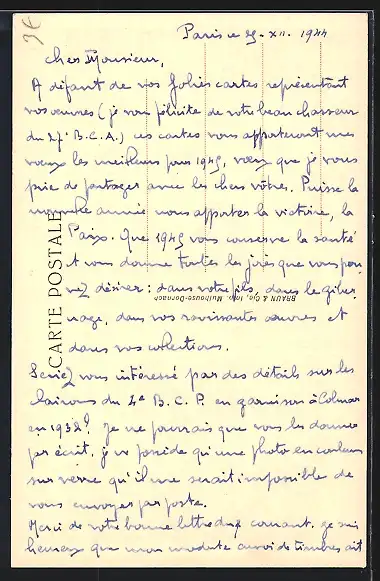 Paris ce 29-XII. 1944
Cher Monsieur,
A défaut de vos jolies cartes représentant
vos œuvres (je vous félicite de votre beau chasseur
du 27e B.C.A.) ces cartes vous apporteront mes
vœux les meilleurs pour 1945, vœux que je vous
prie de partager avec les chers vôtres. Puisse la
nouvelle année nous apporter la victoire, la
Paix. Que 1945 vous conserve la santé
et vous donne toutes les joies que vous pou-
vez désirer : dans votre fils, dans le
nage, dans vos ravissantes œuvres et
dans vos collections.
Seriez vous intéressé par des détails sur les
clairons du 4e B.C.P. en garnison à Colmar
en 1938? Je ne pourrais que vous les donner
par écrit, je ne possède qu'une photo en couleurs
sur verre qu'il me serait impossible de
vous envoyer par poste.
Merci de votre bonne lettre du courant. Je suis
heureux que mon modeste envoi de timbres ait
CARTE POSTALE
BRAUN & Cie, Imp. Mulhouse-Dornach
3€